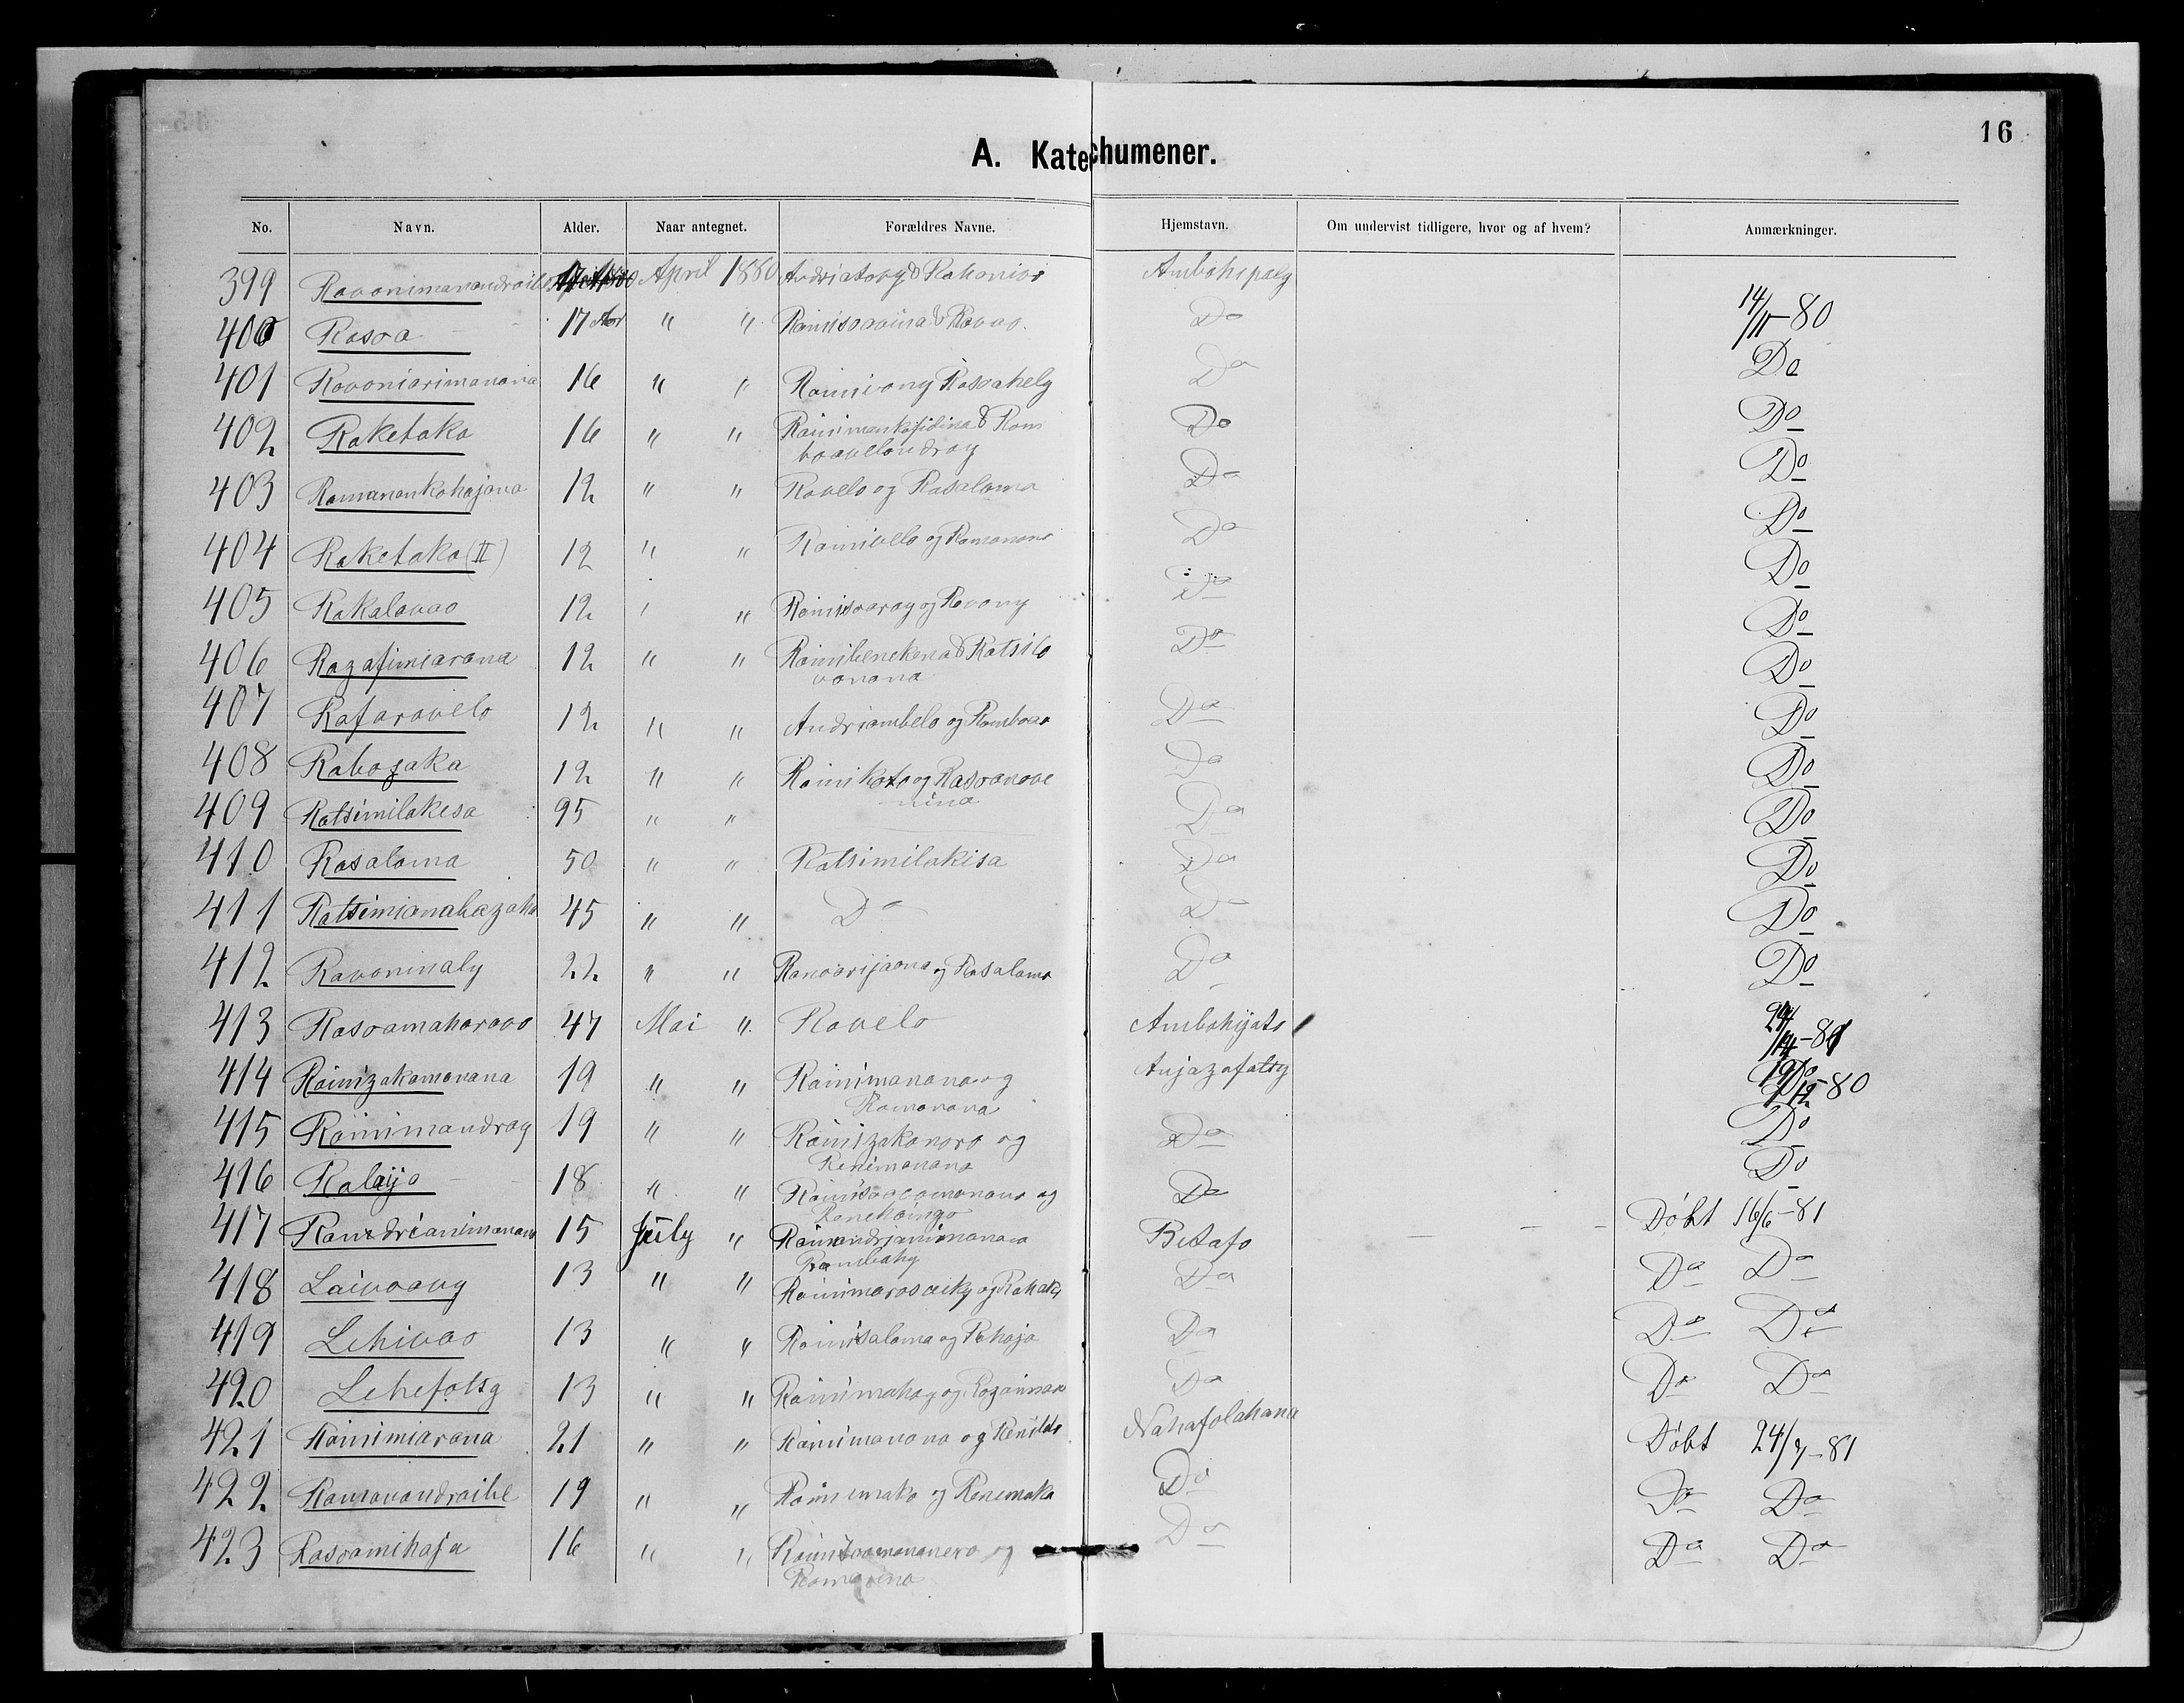 16
A. Katechumener.
No. Navn. Alder. Naar antegnet. Forældres Navne. Hjemstavn. Om undervist tidligere, hvor og af hvem? Anmærkninger.
399 Ravonimanandraibe April 1880 Andriatovy & Rahanivo Ambohipoly
400 Rasoa 17 Aar " " Rainisoavina & Ravao. Do 14/11-80
401 Ravoniarimanana 16 " " Rainivony Rasoahely Do Do
402 Raketaka 16 " " Rainimankafidina & Ram Do Do
boavelondray
403 Ramanankahajana 12 " " Ravelo og Rasalama Do Do
404 Raketaka (II) 12 " " Rainivelo og Ramanana Do Do
405 Rakalavao 12 " " Rainisoaray og Ravony Do Do
406 Razafimiarana 12 " " Rainibenekena & Ratsilo Do Do
vanana
407 Rafaravelo 12 " " Andriambelo og Ramboao Do Do
408 Rabozaka 12 " " Rainikoto og Rasoanove Do Do
nina
409 Ratsimilakesa 95 " " Do Do
410 Rasalama 50 " " Ratsimilakisa Do Do
411 Ratsimianahazaka 45 " " Do Do Do
412 Ravoninaly 22 " " Ranoarijaona og Rasalama Do Do
413 Rasoamaharavo 47 Mai " Ravelo Ambohijato
414 Rainizakamanana 19 " " Rainimanana og Anjazafatsy 19/12-80
Ramanana
415 Rainimandray 19 " " Rainizakanoro og Do Do
Renimanana
416 Ralaijo 18 " " Rainisoaromanana og Do Do
Renehaingo
417 Randrianimanana 15 July " Rainandrianimanana Betafo Döbt 16/6-81
Rambahy
418 Laivoavy 13 " " Rainimarosaiky og Rahaky Do Do Do
419 Lehivao 13 " " Rainisalama og Rahaja Do Do Do
420 Lehefotsy 13 " " Rainimahay og Razaimana Do Do Do
421 Rainimiarana 21 " " Rainimanana og Renildo Nahafolahana Döbt 24/7-81
422 Ramanandraibe 19 " " Rainemaka og Renemaka Do Do Do
423 Rasoamihaja 16 " " Rainisoamananero og Do Do Do